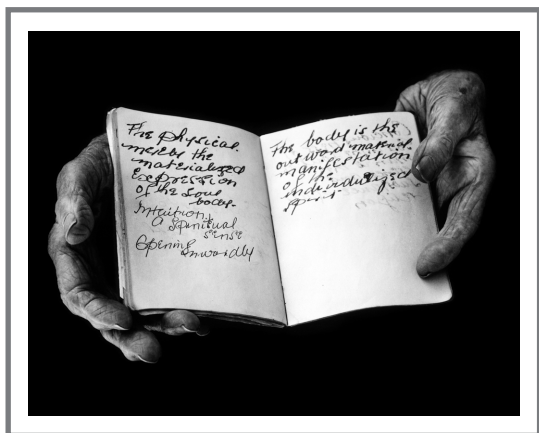 The physical
merely the
materialized
Expression
of the Soul
body.
Intuition,
A Spiritual
sense
Opening
inwardly
The body is the
outward material
manifestation
of the
individualized
spirit